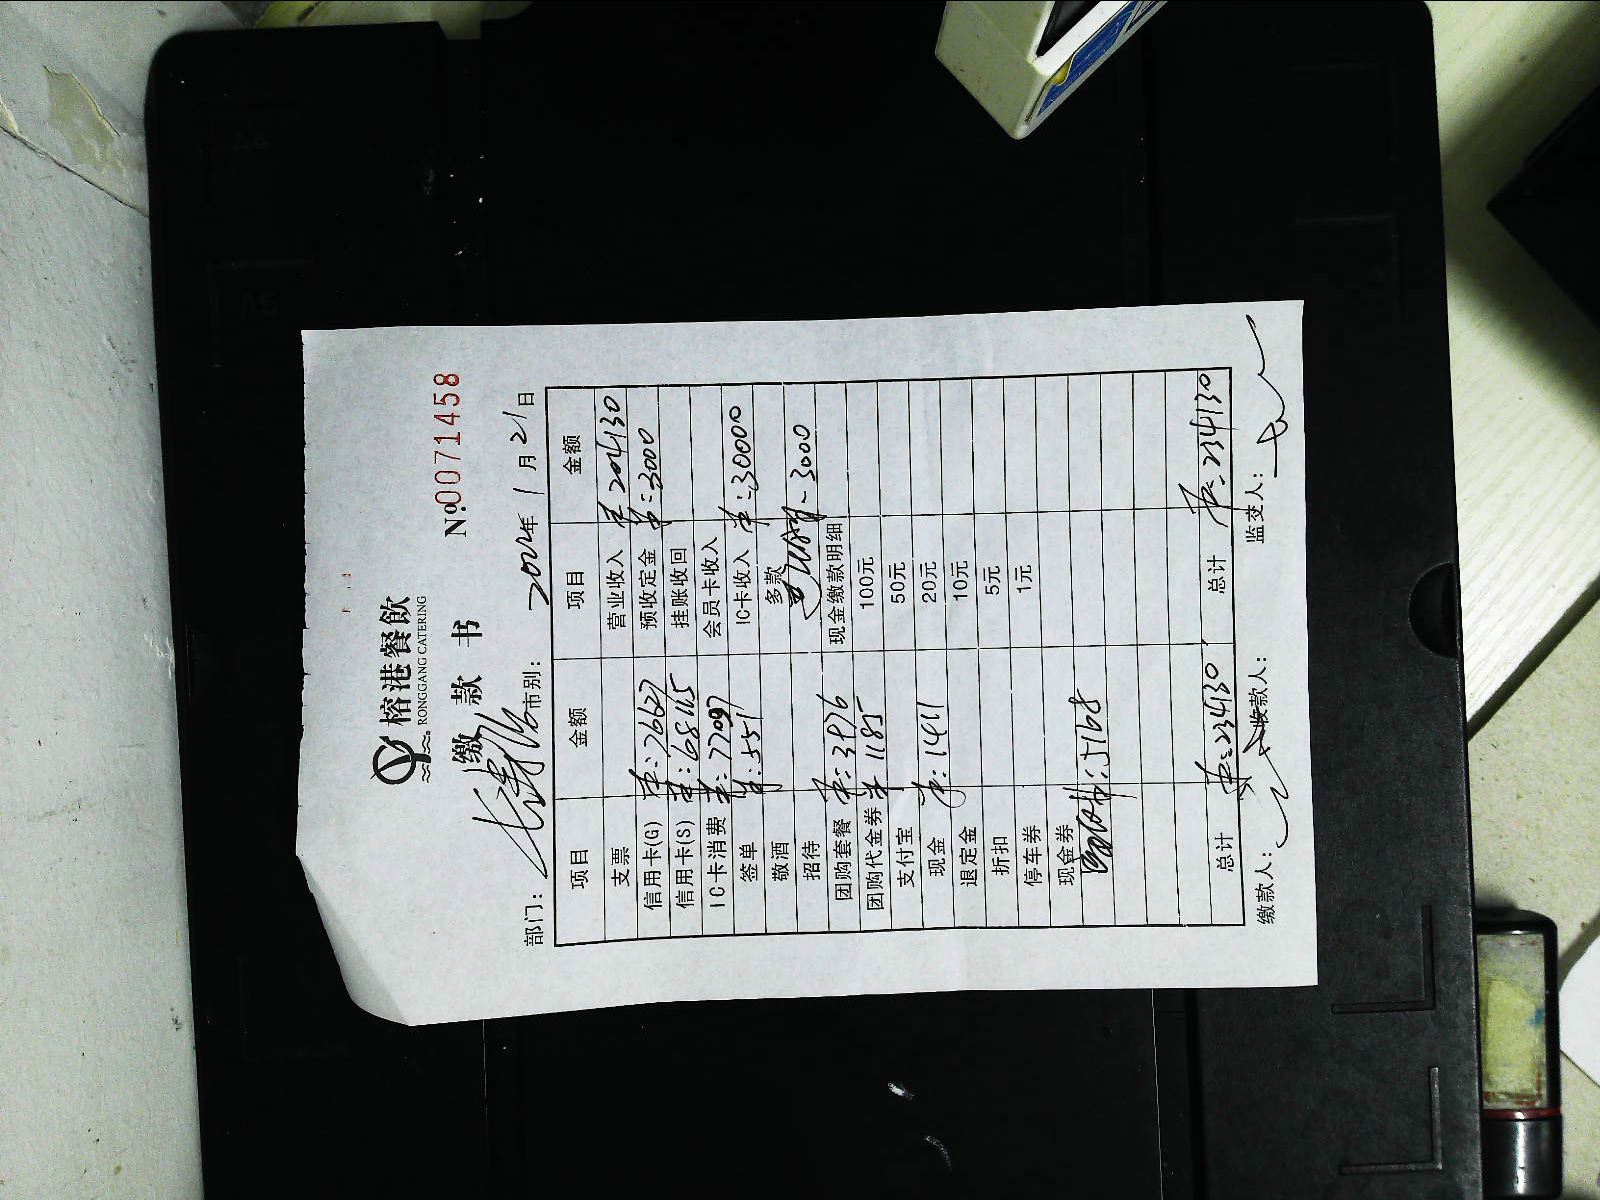 榕港餐飲
RONGGANG CATERING
缴款书
№0071458
部门: 市别: 2022年1月21日
项目 金额 项目 金额
支票 营业收入 ¥204130
信用卡(G) ¥:76627 预收定金 ¥:3000
信用卡(S) ¥:68165 挂账收回
IC卡消费 ¥:77097 会员卡收入
签单 ¥:551 IC卡收入 ¥:30000
敬酒 多款
招待 -3000
团购套餐 ¥:3926 现金缴款明细
团购代金券 ¥1185 100元
支付宝 50元
现金 ¥:1411 20元
退定金 10元
折扣 5元
停车券 1元
现金券
¥:5168
总计 ¥:234130 总计 ¥:234130
缴款人: 收款人: 监交人: